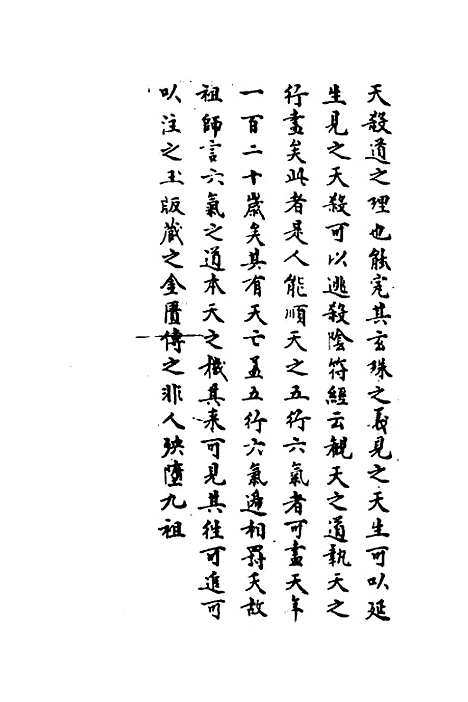 天殺道之理也能究其玄珠之義見之天生可以延
生見之天殺可以逃殺陰符經云観天之道執天之
行盡矣此者是人能順天之五行六氣者可盡天年
一百二十歲矣其有夭亡盖五行六氣逓相罸夭故
祖師言六氣之道本天之機其来可見其徃可追可
以注之玉版蔵之金匱傳之非人殃墮九祖